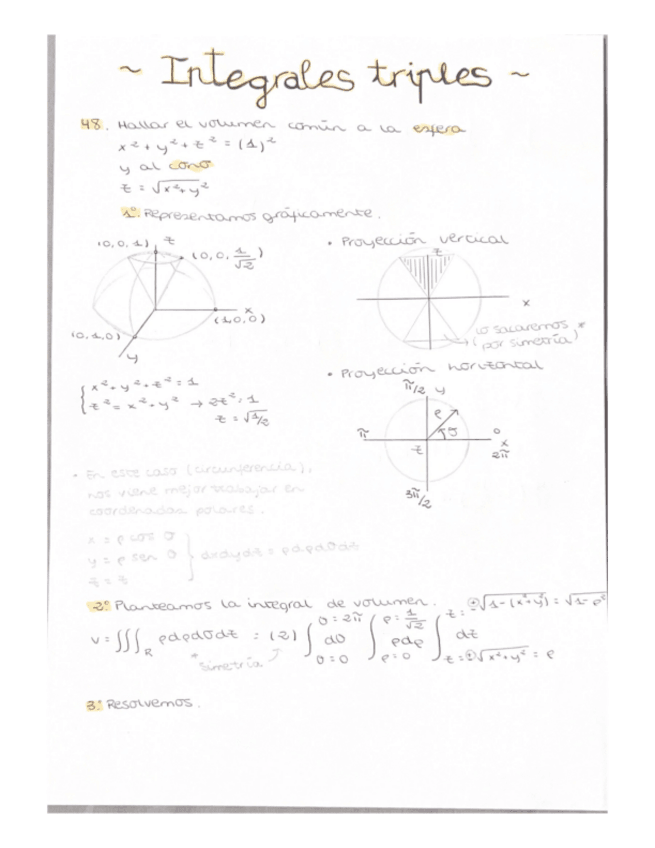 ~ Integrales triples ~
48. Hallar el volumen común a la esfera
x² + y² + z² = (1)²
y al cono
z = √x²+y²
1º Representamos gráficamente.
(0,0,1) z
(0,0, 1/√2)
x
(1,0,0)
(0,1,0)
y
• Proyección vertical
z
x
Lo sacaremos *
(por simetría)
• Proyección horizontal
π/2 y
ρ
π θ 0
x
z 2π
3π/2
{ x² + y² + z² = 1
z² = x² + y² → 2z² = 1
z = √1/2
• En este caso (circunferencia),
nos viene mejor trabajar en
coordenadas polares.
x = ρ cos θ
y = ρ sen θ } dxdydz = ρdρdθdz
z = z
2º Planteamos la integral de volumen.
V = ∭_R ρdρdθdz = (2) ∫_{θ=0}^{θ=2π} dθ ∫_{ρ=0}^{ρ=1/√2} ρdρ ∫_{z=⊕√x²+y² = ρ}^{z=⊕√1-(x²+y²) = √1-ρ²} dz
* simetría
3º Resolvemos.